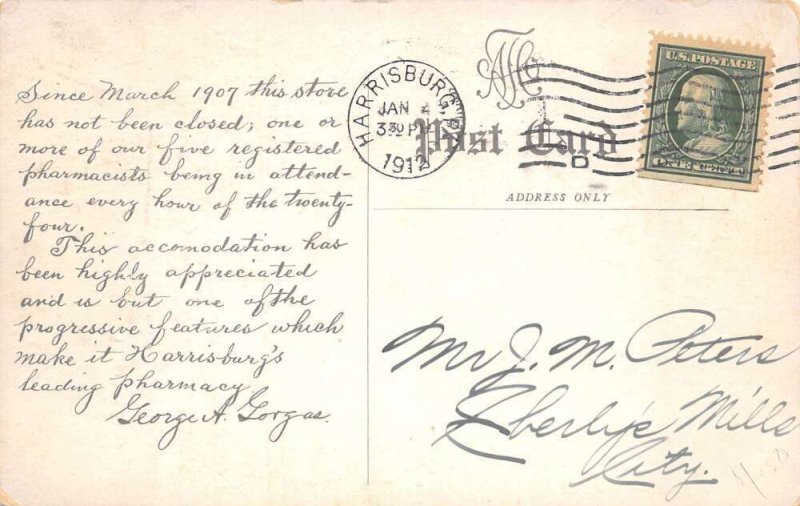 Since March 1907 this store
has not been closed; one or
more of our five registered
pharmacists being in attend-
ance every hour of the twenty-
four.
This accomodation has
been highly appreciated
and is but one of the
progressive features which
make it Harrisburg's
leading pharmacy
George A. Gorgas.
HARRISBURG, PA.
JAN 2
3 30 P
1912
D
U.S. POSTAGE
Post Card
ADDRESS ONLY
Mr J. M. Peters
Eberly's Mills
City.